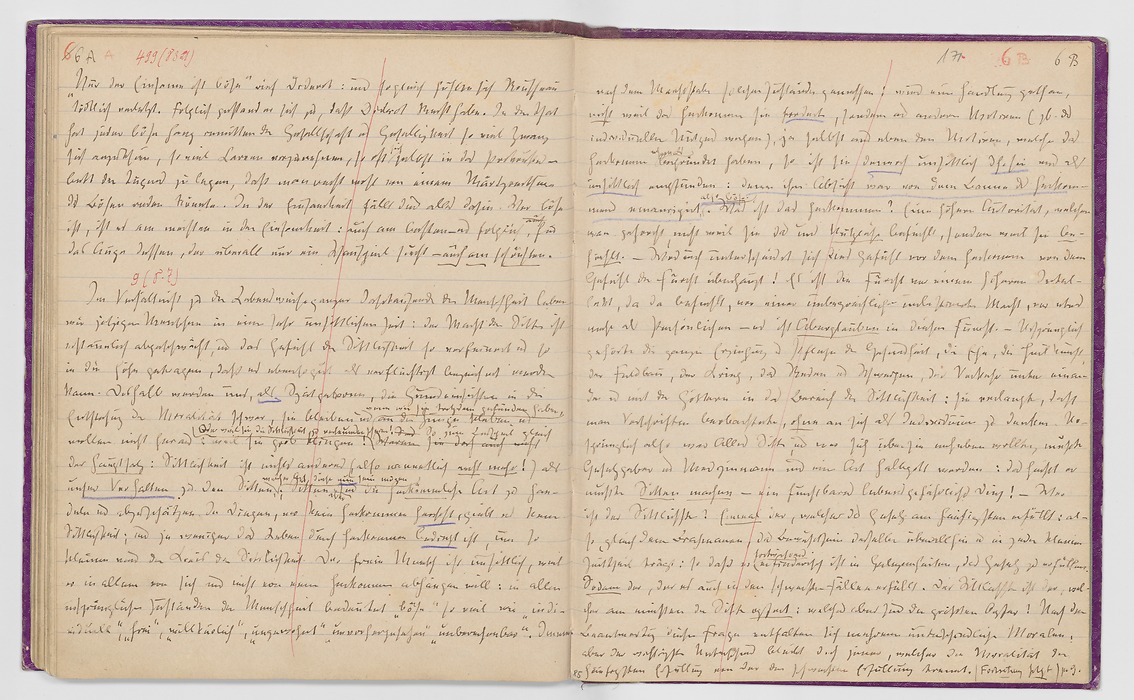 6 6 A A 499 (832)
„Nur der Einsame ist böse" rief Diderot: und sogleich fühlte sich Rousseau
tödtlich verletzt. Folglich gestand er sich zu, daß Diderot Recht habe. In der That
hat jeder böse Hang inmitten der Gesellschaft u Geselligkeit so viel Zwang
sich anzuthun, so viel Larven vorzunehmen, so oft sich selbst in das Prokrustes-
bett der Tugend zu legen, daß man recht wohl von einem Märtyrerthum
des Bösen reden könnte. In der Einsamkeit fällt dies alles dahin. Wer böse
ist, ist es am meisten in der Einsamkeit: auch am besten – u folglich, für
das Auge dessen, der überall nur ein Schauspiel sieht – auch am schönsten.
9 (8-7)
Im Verhältniß zu der Lebensweise ganzer Jahrtausende der Menschheit leben
wir jetzigen Menschen in einer sehr unsittlichen Zeit: die Macht der Sitte ist
erstaunlich abgeschwächt u das Gefühl der Sittlichkeit so verfeinert u so
in die Höhe getragen, daß es ebensogut als verflüchtigt bezeichnet werden
kann. Deßhalb werden uns, als Spätgeborenen, die Grundeinsichten in die
wenn wir sie trotzdem gefunden haben,
Entstehung der Moralität schwer, sie bleiben uns an der Zunge kleben u
Oder weil sie die Sittlichkeit zu verleumden scheinen!
wollen nicht heraus: weil sie grob klingen! So zum Beispiel gleich
der Hauptsatz: Sittlichkeit ist nichts anderes (also namentlich nicht mehr!) als
welcher Art diese nun sein mögen
unser Verhalten zu den Sitten; Sitten sind die herkömmliche Art zu han-
deln u abzuschätzen. In Dingen, wo kein Herkommen herrscht, giebt es keine
Sittlichkeit; und je weniger das Leben durch Herkommen bedingt ist, um so
kleiner wird der Kreis der Sittlichkeit. Der freie Mensch ist unsittlich, weil
er in allem von sich und nicht von einem Herkommen abhängen will: in allen
ursprünglichen Zuständen der Menschheit bedeutet „böse" so viel wie „indi-
viduell" „frei", „willkürlich", „ungewohnt" „unvorhergesehen" „unberechenbar". Immer
171 6 B 6 B
nach dem Maaßstab solcher Zustände gemessen! wird eine Handlung gethan,
nicht weil das Herkommen sie fordert, sondern aus anderen Motiven (zb. des
individuellen Nutzens wegen), ja selbst aus eben den Motiven, welche das
Herkommen ehemals begründet haben, so ist sie dennoch unsittlich und als
unsittlich empfunden: denn ihre Absicht war von dem Banne des Herkom-
mens emancipirt. Was ist das Herkommen? Eine höhere Autorität, welcher
man gehorcht, nicht weil sie das uns Nützliche befiehlt, sondern weil sie be-
fiehlt. – Wodurch unterscheidet sich dies Gefühl vor dem Herkommen von dem
Gefühl der Furcht überhaupt? Es ist die Furcht vor einem höheren Intel-
lekt, der da befiehlt, vor einer unbegreiflichen unbestimmten Macht, vor etwas
mehr als Persönlichem – es ist Aberglauben in dieser Furcht. – Ursprünglich
gehörte die ganze Erziehung u Pflege der Gesundheit, die Ehe, die Heilkunst,
der Feldbau, der Krieg, das Reden u Schweigen, der Verkehr unter einan-
der u mit den Göttern in den Bereich der Sittlichkeit: sie verlangte, daß
man Vorschriften beobachtete, ohne an sich als Individuum zu denken. Ur-
sprünglich also war Alles Sitte und wer sich über sie erheben wollte, mußte
Gesetzgeber u Medizinmann und eine Art Halbgott werden: das heißt er
mußte Sitten machen – ein furchtbares lebensgefährliches Ding! – Wer
ist der Sittlichste? Einmal der, welcher das Gesetz am häufigsten erfüllt: al-
so gleich dem Brahmanen das Bewußtsein desselben überallhin u in jeden kleinen
fortwährend
Zeittheil trägt: so daß er erfinderisch ist in Gelegenheiten, das Gesetz zu erfüllen.
Sodann der, der es auch in den schwersten Fällen erfüllt. Der Sittlichste ist der, wel-
cher am meisten der Sitte opfert: welches aber sind die größten Opfer? Nach der
Beantwortung dieser Frage entfalten sich mehrere unterschiedliche Moralen;
aber der wichtigste Unterschied bleibt doch jener, welcher die Moralität der
häufigsten Erfüllung von der der schwersten Erfüllung trennt. (Fortsetzung folgt)